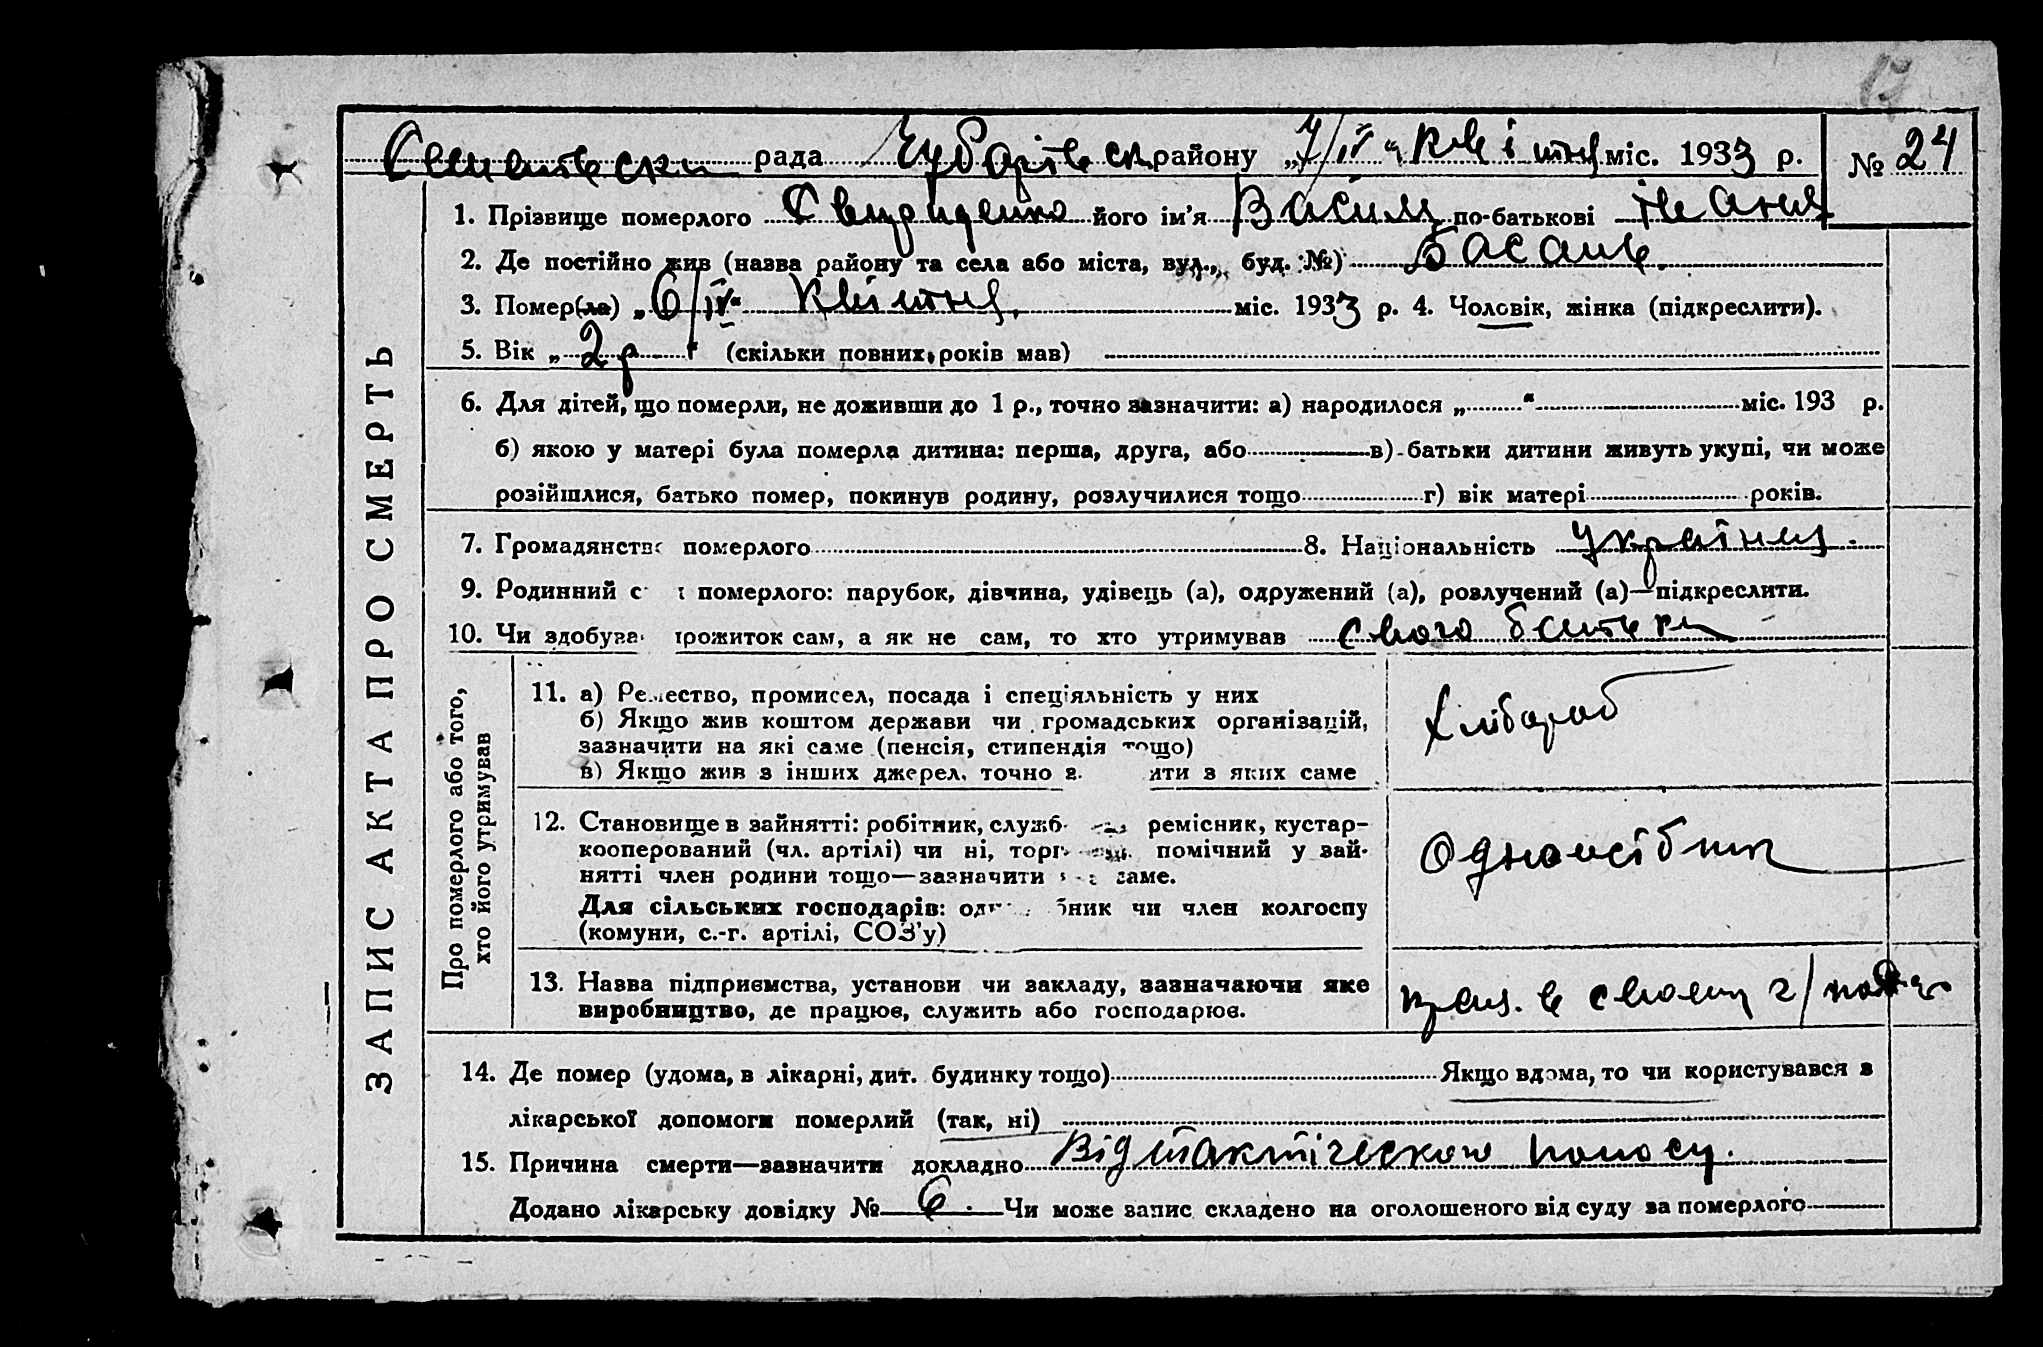 рада Чубарівськ району „7/IV“ квітня міс. 1933 р. № 24
1. Прізвище померлого Свириденко його ім'я Василь по-батькові Іванов
2. Де постійно жив (назва району та села або міста, вул., буд. №) Басань
3. Помер(ла) „6/IV“ квітня міс. 1933 р. 4. Чоловік, жінка (підкреслити).
5. Вік „2 р“ (скільки повних років мав)
6. Для дітей, що померли, не доживши до 1 р., точно зазначити: а) народилося „ “ міс. 193 р.
б) якою у матері була померла дитина: перша, друга, або в) батьки дитини живуть укупі, чи може
розійшлися, батько помер, покинув родину, розлучилися тощо г) вік матері років.
7. Громадянство померлого 8. Національність
9. Родинний с померлого: парубок, дівчина, удівець (а), одружений (а), розлучений (а)—підкреслити.
10. Чи здобува прожиток сам, а як не сам, то хто утримував свого батьки
ЗАПИС АКТА ПРО СМЕРТЬ
Про померлого або того,
хто його утримував
11. а) Ремество, промисел, посада і спеціяльність у них
б) Якщо жив коштом держави чи громадських організацій,
зазначити на які саме (пенсія, стипендія тощо)
в) Якщо жив з інших джерел, точно з ити з яких саме
Хлібороб
12. Становище в зайнятті: робітник, служб ремісник, кустар-
кооперований (чл. артілі) чи ні, торг помічний у зай-
нятті член родини тощо—зазначити саме.
Для сільських господарів: од бник чи член колгоспу
(комуни, с.-г. артілі, СОЗ'у)
Одноосібник
13. Назва підприємства, установи чи закладу, зазначаючи яке
виробництво, де працює, служить або господарює.
в своєму
14. Де помер (удома, в лікарні, дит. будинку тощо) Якщо вдома, то чи користувався з
лікарської допомоги померлий (так, ні)
15. Причина смерти—зазначити докладно Від поносу.
Додано лікарську довідку № 6. Чи може запис складено на оголошеного від суду за померлого